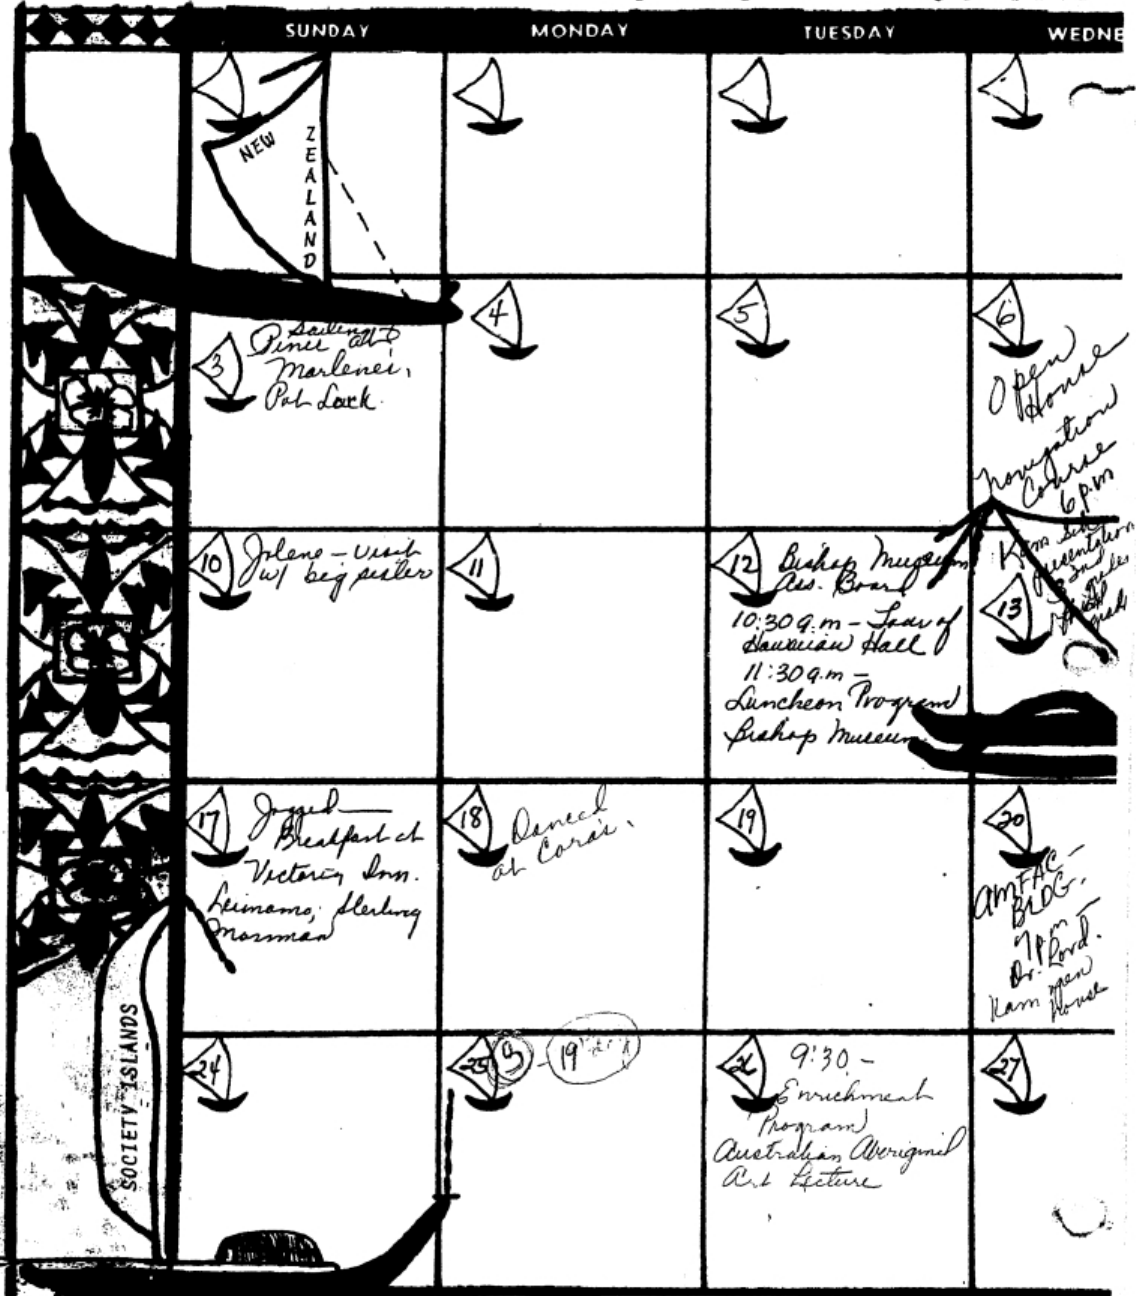 SUNDAY
MONDAY
TUESDAY
WEDNE
NEW
ZEALAND
3
Sailing
at
Marlene's,
Pot Luck.
4
5
6
Open
House
Navigation
Course
6 p.m
10
Jolene - visit
w/ big sister
11
12
Bishop Museum
Ass. Board
10:30 a.m - Tour of
Hawaiian Hall
11:30 a.m -
Luncheon Program
Bishop Museum
Kam Sch
presentation
2nd
grade
13
17
Jogged
Breakfast at
Victoria Inn.
Leimomo, Sterling
Mossman
18
Danced
at Cora's.
19
20
AMFAC -
BLDG.
7 pm -
Dr. Lord.
Kam open
house
SOCIETY ISLANDS
24
25
19
26
9:30 -
Enrichment
Program
Australian Aboriginal
Art Lecture
27